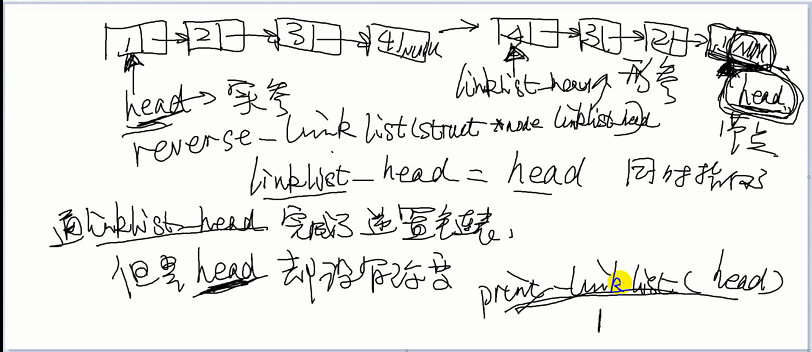 1 2 3 4 NULL 4 3 2 1 NULL
head → 实参 linklist_head 形参 head
reverse_linklist(struct *node linklist_head) 节点
linklist_head = head 同时指向了
通linklist_head 完成了逆置链表,
但是 head 却没有改变
print_linklist(head)
1